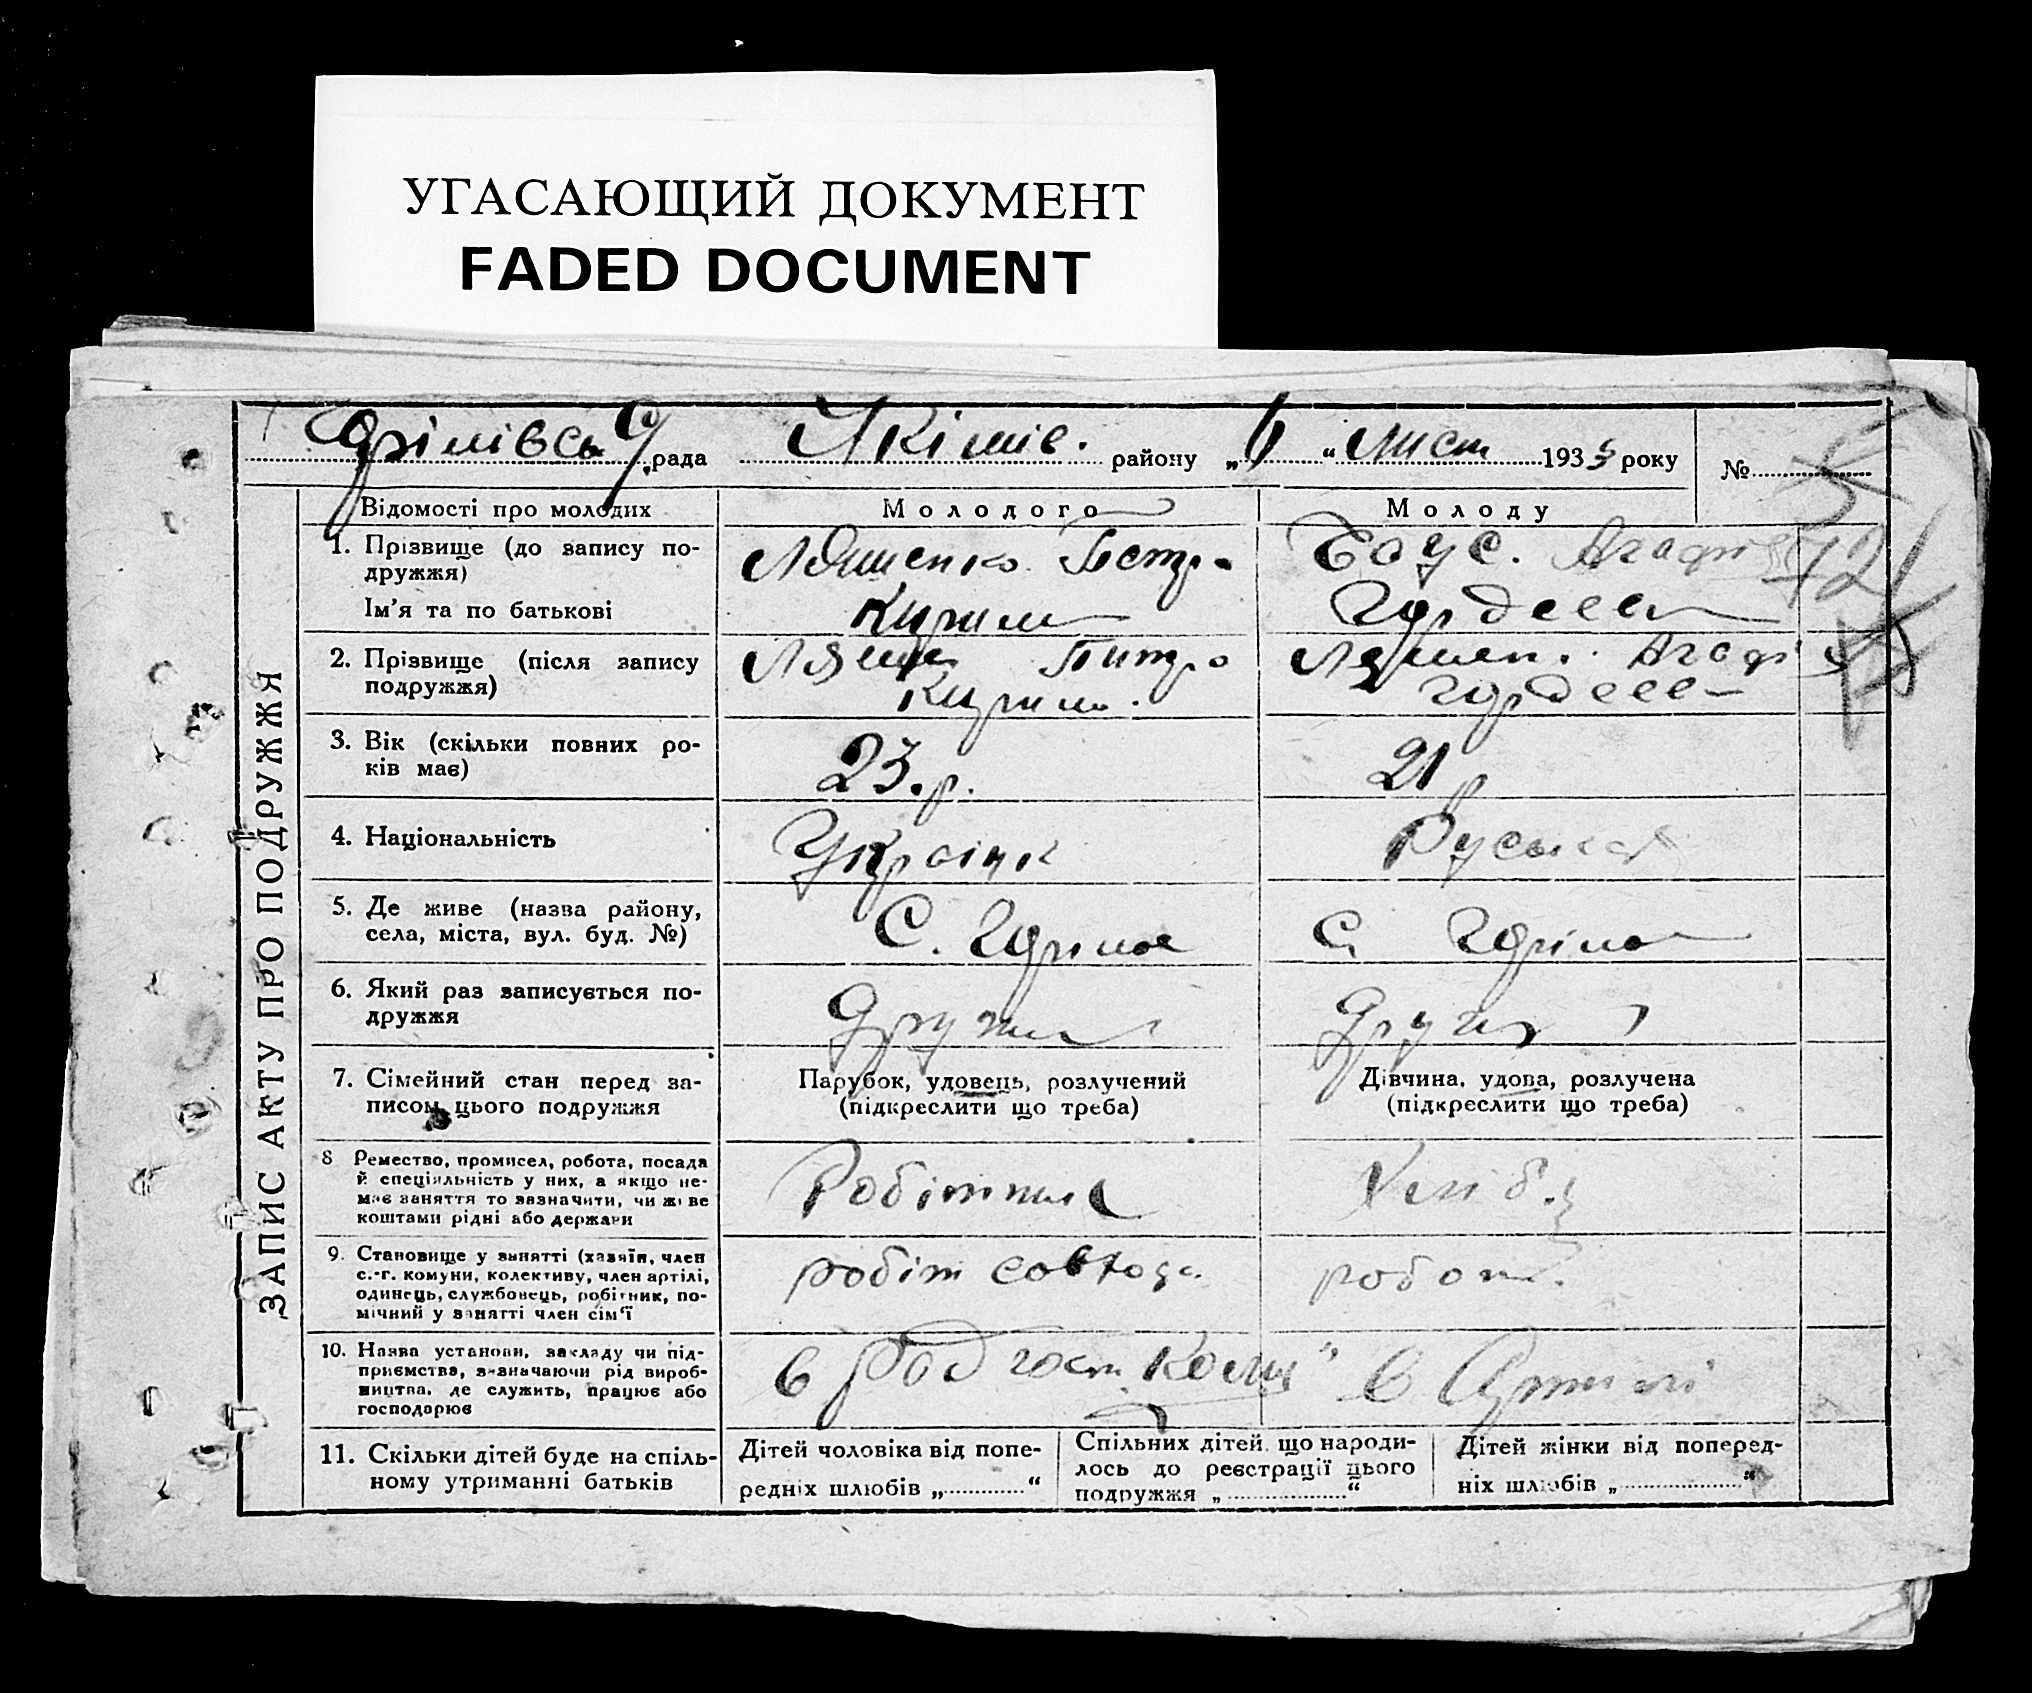 УГАСАЮЩИЙ ДОКУМЕНТ
FADED DOCUMENT
рада Якімів. району „ 6 “ лист 1933 року №
Відомості про молодих Молодого Молоду
1. Прізвище (до запису по-
дружжя)
Ім'я та по батькові
Ляшенко Петро
Кирил
Агафія
Гордеев
2. Прізвище (після запису
подружжя)
Ляшен Питро
Кирил.
Ляшен. Агафія
Гордеев
3. Вік (скільки повних ро-
ків має)
23.р.
21 р
4. Національність
Українк
Руськая
5. Де живе (назва району,
села, міста, вул. буд. №)
С.
С
6. Який раз записується по-
дружжя
Другий
7. Сімейний стан перед за-
писом цього подружжя
Парубок, удовець, розлучений
(підкреслити що треба)
Дівчина, удова, розлучена
(підкреслити що треба)
8 Ремество, промисел, робота, посада
й спеціяльність у них, а якщо не-
має заняття то зазначити, чи живе
коштами рідні або держави
Робітник
Хліб.
9. Становище у занятті (хазяїн, член
с.-г. комуни, колективу, член артілі,
одинець, службовець, робітник, по-
мічний у занятті член сім'ї
робіт совхоза
робот.
10. Назва установи, закладу чи під-
приємства, зазначаючи рід вироб-
ництва, де служить, працює або
господарює
в
в Артілі
11. Скільки дітей буде на спіль-
ному утриманні батьків
Дітей чоловіка від попе-
редніх шлюбів „ “
Спільних дітей, що народи-
лось до реєстрації цього
подружжя „ “
Дітей жінки від поперед-
ніх шлюбів „ “
ЗАПИС АКТУ ПРО ПОДРУЖЖЯ